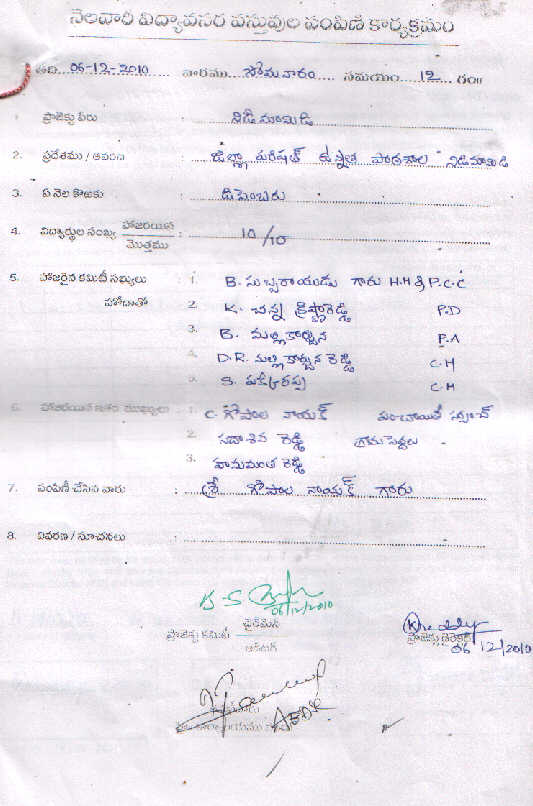 నెలవారీ విద్యావసర వస్తువుల పంపిణీ కార్యక్రమం
తేది. 06-12-2010 వారము సోమవారం సమయం 12 గం॥
1. ప్రాజెక్టు పేరు : నిడిమామిడి
2. ప్రదేశము / ఆవరణ : జిల్లా పరిషత్ ఉన్నత పాఠశాల నిడిమామిడి
3. ఏ నెల కొఱకు : డిసెంబరు
4. విద్యార్థుల సంఖ్య హాజరయిన / మొత్తము : 10/10
5. హాజరైన కమిటీ సభ్యులు : 1. B. సుబ్బరాయుడు గారు H.M & P.C.C
హోదాతో 2. K. చిన్న క్రిష్ణారెడ్డి P.D
3. B. మల్లికార్జున P.A
4. D.R. మల్లికార్జున రెడ్డి C.M
5. S. C.M
6. హాజరయిన ఇతర ముఖ్యులు : 1. C. గోపాల నాయక్ పంచాయితీ సర్పంచ్
2. సదాశివ రెడ్డి గ్రామపెద్దలు
3. హనుమంత రెడ్డి
7. పంపిణీ చేసిన వారు : శ్రీ గోపాల నాయక్ గారు
8. వివరణ / సూచనలు :
06/12/2010
చైర్మెన్
ప్రాజెక్టు కమిటీ
ప్రాజెక్టు డైరెక్టర్
06/12/2010